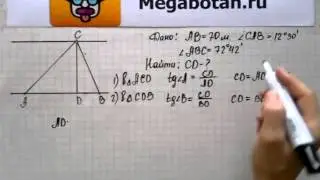 Megabotan.ru
Дано: AB=70м, ∠CAB=12°30'
∠ABC=72°42'
Найти: CD-?
C
1) В△ACD tg∠A=CD/AD CD=AD
2) В△CDB tg∠B=CD/BD CD=B
A D B
AD